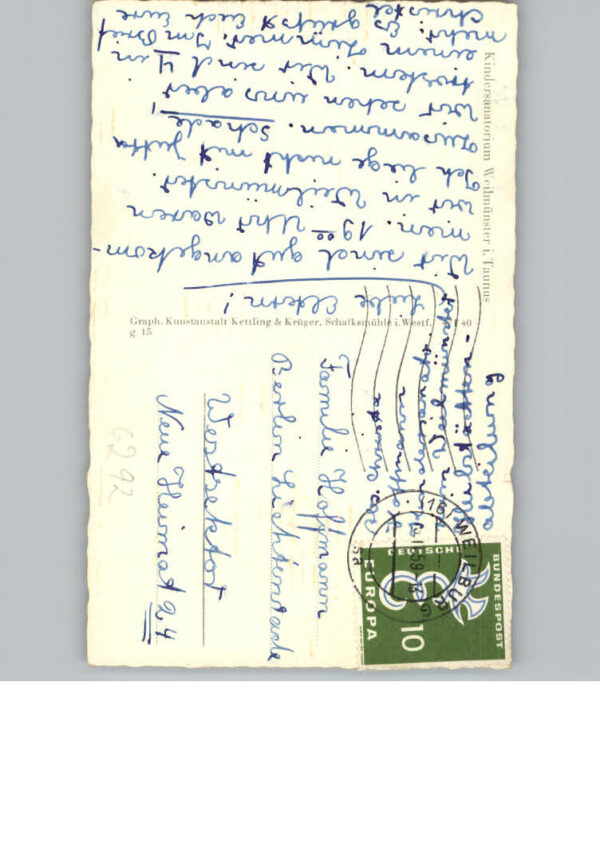 Kindersanatorium Weilmünster i. Taunus
Liebe Eltern!
Wir sind gut angekom-
men. 19⁰⁰ Uhr waren
wir in Weilmünster.
Ich liege nicht mit Jutta
zusammen. Schade!
Wir sehen uns aber
trotzdem. Wir sind 4 in
einem Zimmer. Im Brief
mehr. Es grüßt Euch Eure
Christel
Graph. Kunstanstalt Kettling & Krüger, Schalksmühle i. Westf.
g 15
DEUTSCHE
BUNDESPOST
EUROPA
10
(16) WEILBURG
Familie Hoffmann
Berlin Lichtenrade
Westsektor
Neue Heimat 24
6292